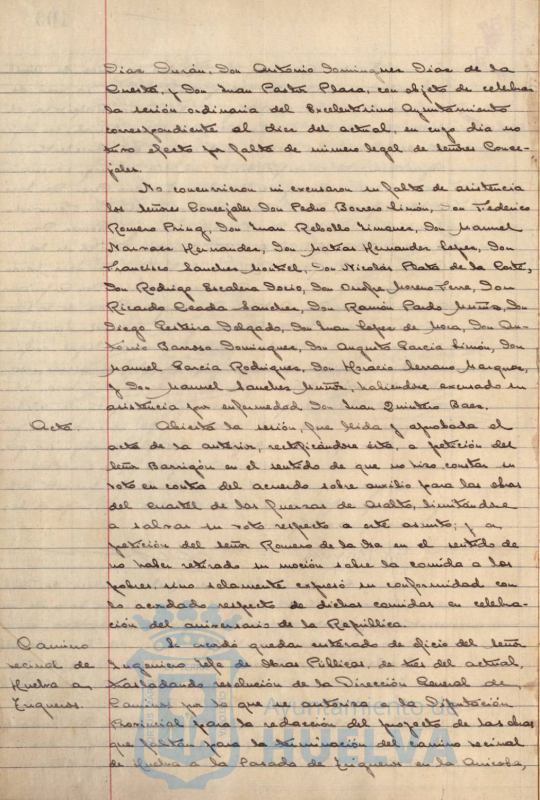 Díaz Durán, Don Antonio Domínguez Díaz de la
Cuesta, y Don Juan Pastor Plaza, con objeto de celebrar
la sesión ordinaria del Excelentísimo Ayuntamiento
correspondiente al doce del actual, en cuyo día no
tuvo efecto por falta de número legal de Señores Conce-
jales.
No concurrieron ni excusaron su falta de asistencia
los Señores Concejales Don Pedro Borrero Limón, Don Federico
Romero Don Juan Rebollo Jiménez, Don Manuel
Narváez Hernández, Don Matías Hernández López, Don
Francisco Sánchez Montiel, Don Nicolás Plata de la Corte,
Don Rodrigo Escalera Don Onofre Moreno Don
Ricardo Sánchez, Don Ramón Pardo Muñoz, Don
Diego Delgado, Don Juan López de Mora, Don An-
tonio Barroso Domínguez, Don Augusto García Limón, Don
Manuel García Rodríguez, Don Horacio Serrano Márquez,
y Don Manuel Sánchez Muñoz, habiendose excusado su
asistencia por enfermedad Don Juan Quintero Baez.
Acta Abierta la sesión, fue leída y aprobada el
acta de la anterior, rectificándose ésta, a petición del
Señor Barrigón en el sentido de que no hizo constar su
voto en contra del acuerdo sobre auxilio para las obras
del cuartel de las fuerzas de Asalto, limitándose
a salvar su voto respecto a este asunto; y a
petición del Señor Romero de la Osa en el sentido de
no haber retirado su moción sobre la comida a los
pobres, sino solamente expresó su conformidad con
lo acordado respecto de dichas comidas en celebra-
ción del aniversario de la República.
Camino Se acordó quedar enterado de oficio del Señor
vecinal de Ingeniero Jefe de Obras Públicas, de tres del actual,
Huelva a trasladando resolución de la Dirección General de
Trigueros. Caminos por la que se autoriza a la Diputación
Provincial para la redacción del proyecto de las obras
que faltan para la terminación del camino vecinal
de Huelva a la Pasada de Trigueros en la Anicoba,
Ayuntamiento de
HUELVA